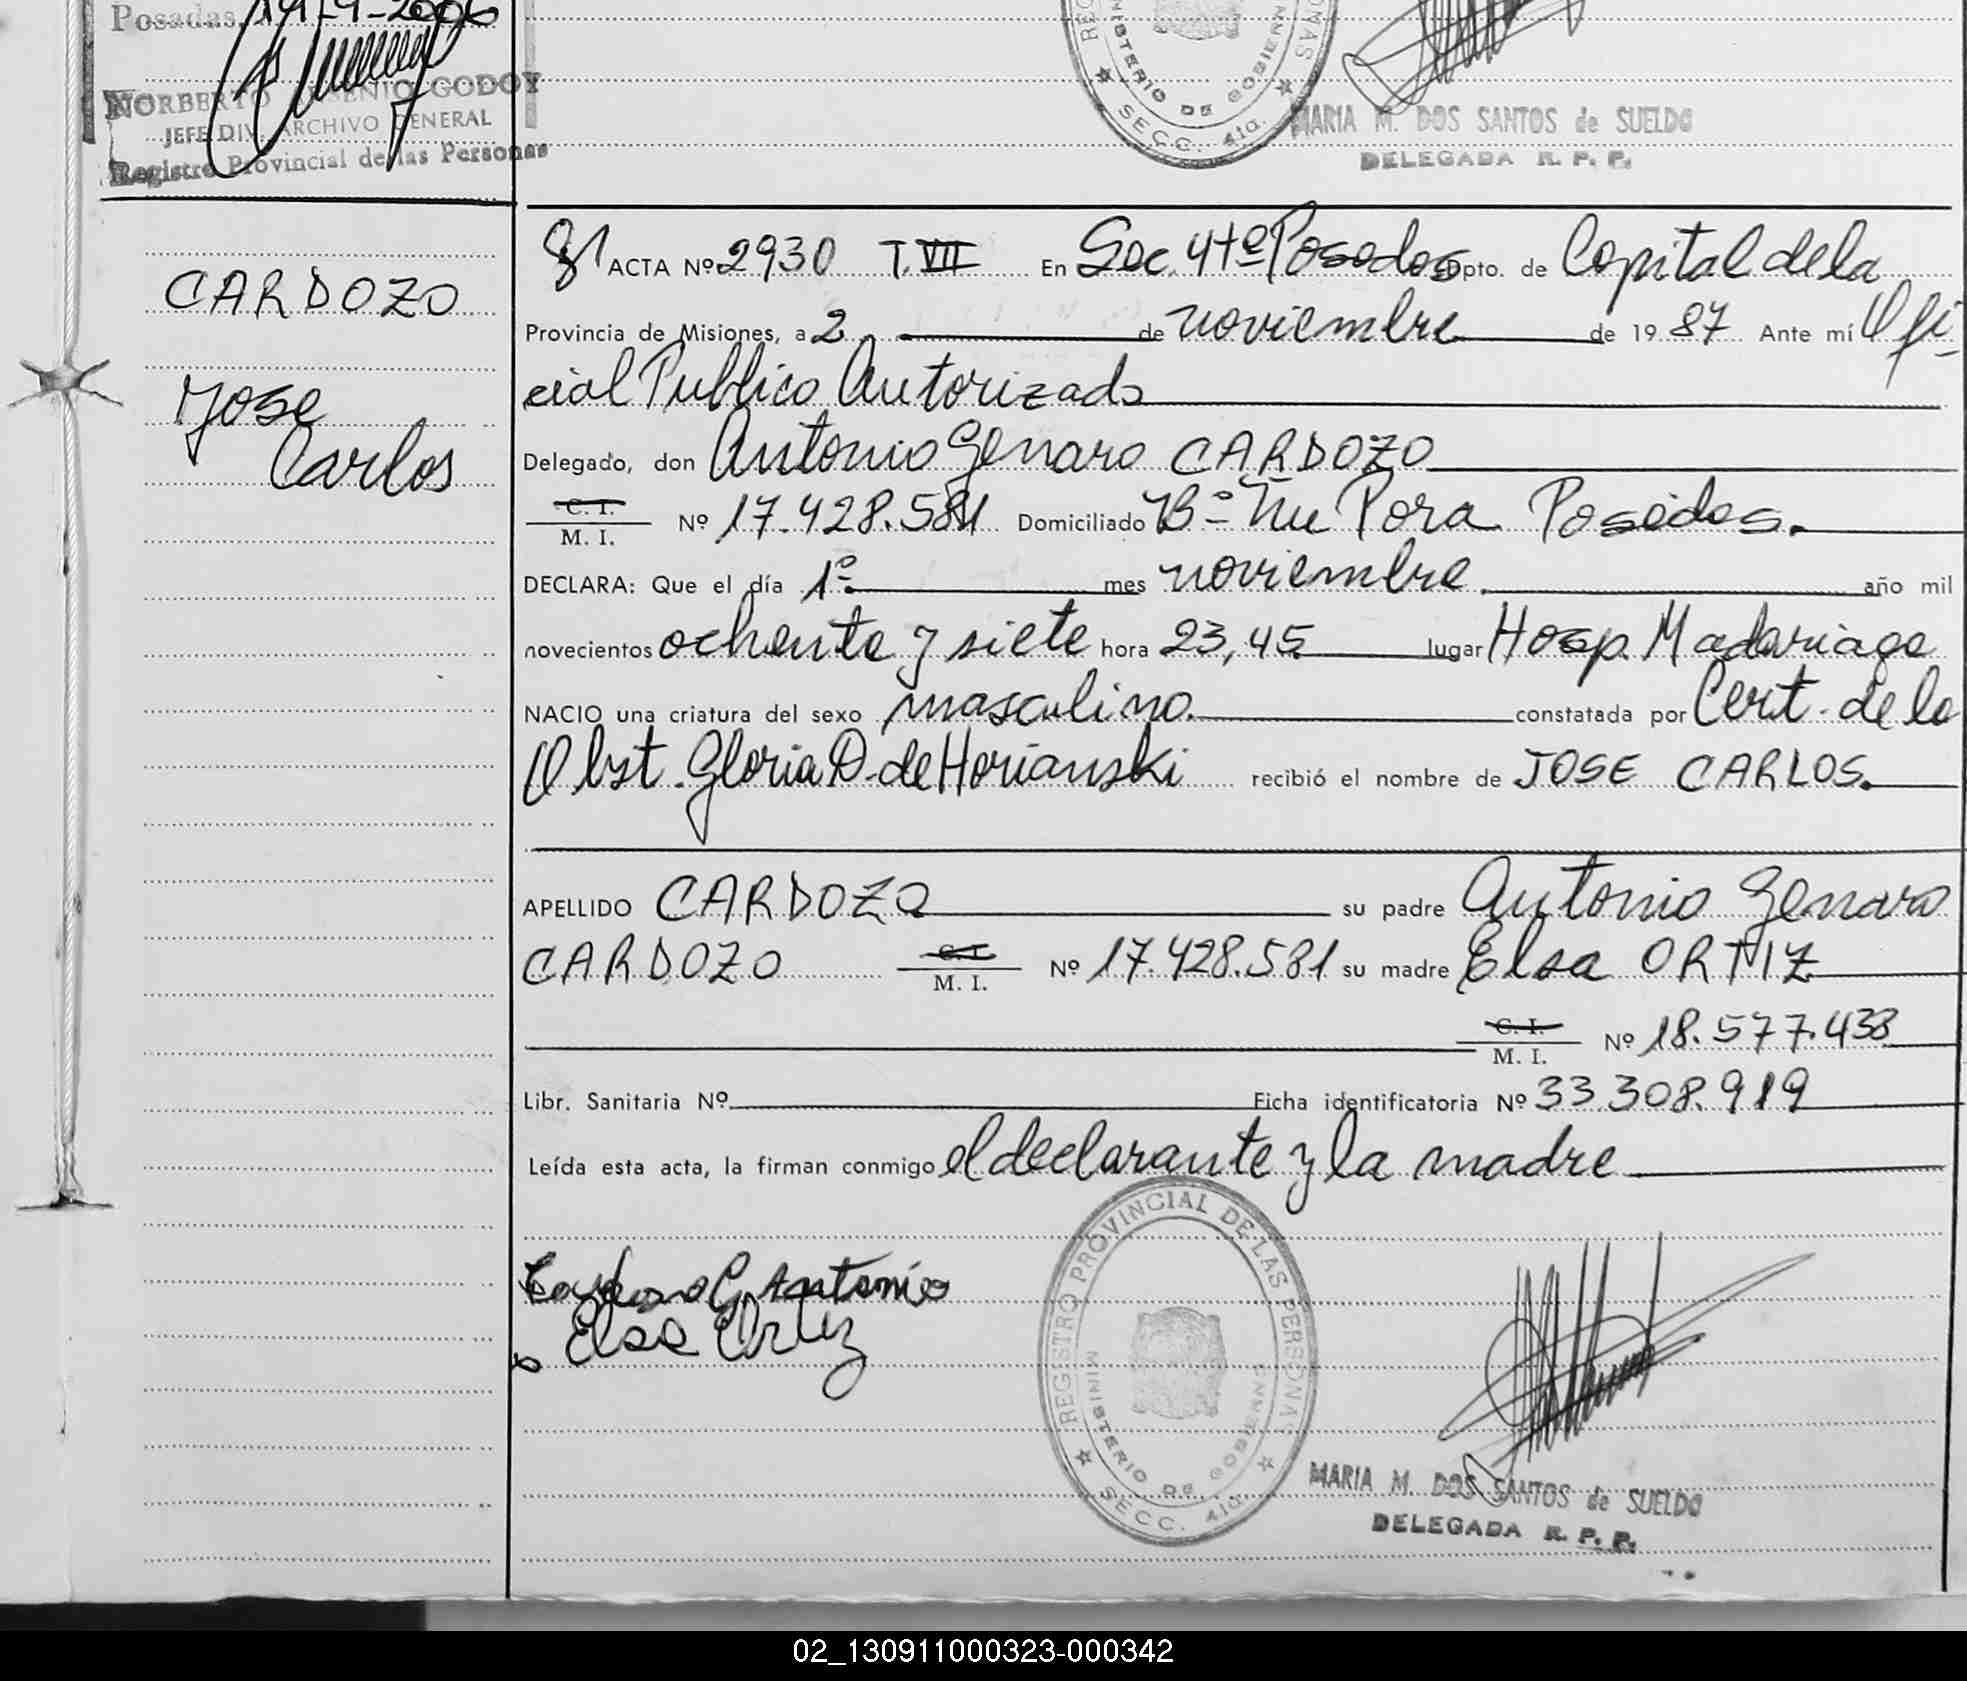 Posadas, 19-4-2006
NORBERTO ARSENIO GODOY
JEFE DIV. ARCHIVO GENERAL
Registro Provincial de las Personas
MINISTERIO DE GOBIERNO
SECC. 4ta.
MARIA M. DOS SANTOS de SUELDO
DELEGADA R. P. P.
CARDOZO
Jose
Carlos
ACTA Nº 2930 T. VII En Sec. 4ta Posadas Dpto. de Capital de la
Provincia de Misiones, a 2 de noviembre de 19 87 Ante mí Ofi-
cial Publico Autorizado
Delegado, don Antonio Genaro CARDOZO
C. I.
M. I. Nº 17.428.581 Domiciliado Bº Ñu Pora Posadas.
DECLARA: Que el día 1º mes noviembre año mil
novecientos ochenta y siete hora 23,45 lugar Hosp. Madariaga
NACIO una criatura del sexo masculino. constatada por Cert. de la
Obst. Gloria D. de Horianski recibió el nombre de JOSE CARLOS.
APELLIDO CARDOZO su padre Antonio Genaro
CARDOZO C. I. M. I. Nº 17.428.581 su madre Elsa ORTIZ
C. I. M. I. Nº 18.577.438
Libr. Sanitaria Nº Ficha identificatoria Nº 33.308.919
Leída esta acta, la firman conmigo el declarante y la madre
Cardozo G. Antonio
Elsa Ortiz
REGISTRO PROVINCIAL DE LAS PERSONAS
MINISTERIO DE GOBIERNO
SECC. 4ta.
MARIA M. DOS SANTOS de SUELDO
DELEGADA R. P. P.
02_130911000323-000342